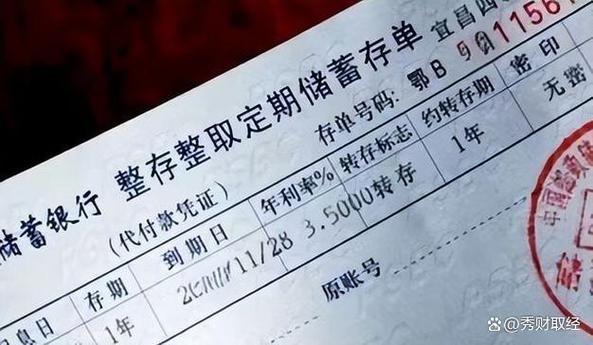 储蓄银行 整存整取定期储蓄存单 宜昌四
(代付款凭证) 存单号码: 鄂B
息日 存期 到期日 年利率% 转存标志 约转存期 密印
1年 11/28 3.5000 转存 1年 无密
原账号
@秀财取经